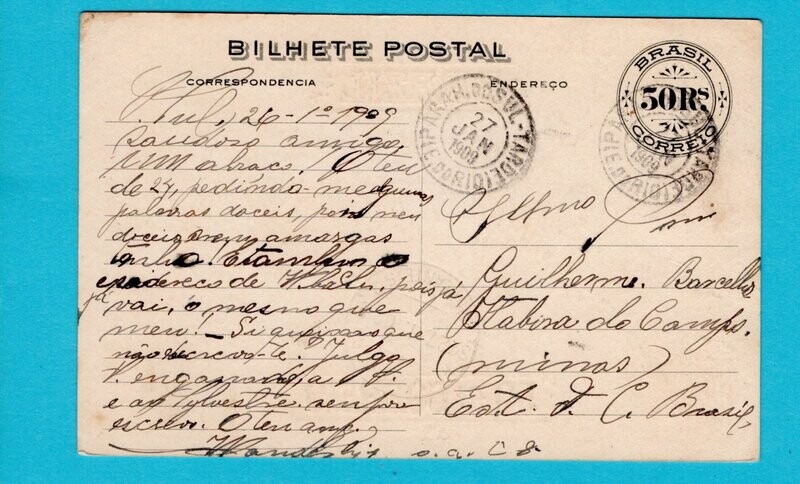 BILHETE POSTAL
CORRESPONDENCIA
ENDEREÇO
BRASIL
50 Rs
CORREIO
PARAH. DO SUL - TARDE
27
JAN
1909
Sul, 26-1º 1909
saudoso amigo
um abraço. O teu
de 24, pedindo-me algumas
palavras doceis, pois nem
doceis nem amargas
tenho. E tambem o
endereço de
vai, o mesmo que
meu. - Si queixas que
não escrevo-te. Julgo
engano, a
e ao Sylvestre sempre
escrevo. O teu amo.
Illmo Snr
Guilherme Barcellos
Itabira do Campo.
(Minas)
Est. d. C. Brasil